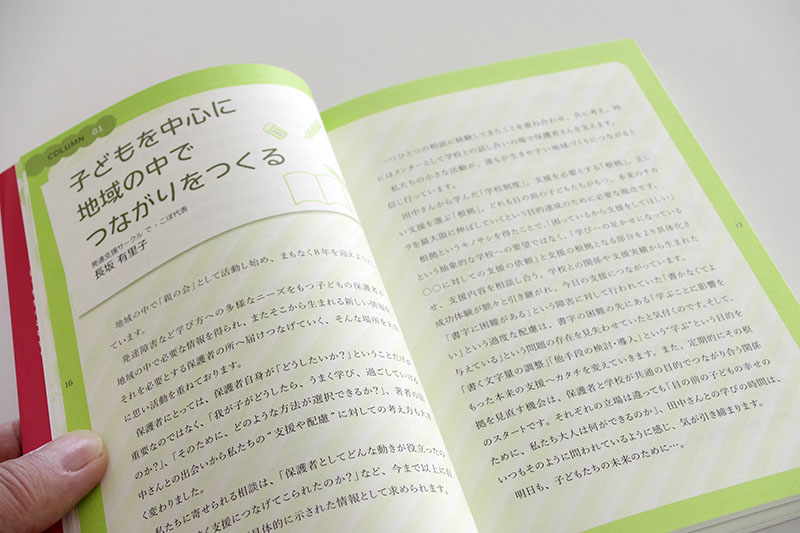 COLUMN 01
子どもを中心に
地域の中で
つながりをつくる
発達支援サークル で・こぼ代表
長坂 有里子
地域の中で「親の会」として活動し始め、まもなく8年を迎えようと
ています。
発達障害など学び方への多様なニーズをもつ子どもの保護者が
地域の中で必要な情報を得られ、またそこから生まれる新しい情報を
それを必要とする保護者の所へ届けつなげていく、そんな場所を大切
に思い活動を重ねております。
保護者にとっては、保護者自身が「どうしたいか?」ということだけが
重要なのではなく、「我が子がどうしたら、うまく学び、過ごしていける
のか?」、「そのために、どのような方法が選択できるか?」、著者の田
中さんとの出会いから私たちの“支援や配慮”に対しての考え方も大き
く変わりました。
私たちに寄せられる相談は、「保護者としてどんな動きが役立ったの
く支援につなげてこられたのか?」など、今まで以上に具
具体的に示された情報として求められます。
16
一つひとつの相談に経験してきたことを重ね合わせ、共に考え、時
にはメンターとして学校との話し合いの場で保護者さんを支えます。
私たちの小さな活動が、誰もが生きやすい地域づくりにつながると
信じ行っています。
田中さんから学んだ「学校制度」、支援を必要とする「根拠」、正し
い支援を選ぶ「根拠」、どれも目の前の子どもたちがもつ、本来のチカ
ラを最大限に伸ばしていくという目的達成のために必要な視点です。
根拠というモノサシを得たことで、「困っているから支援をしてほしい」
という抽象的な学校への要望ではなく、「学びへの足かせになっている
〇〇に対しての支援の依頼」と支援の根拠となる部分をより具体化さ
せ、支援内容を相談し合う。学校との関係や支援実績から生まれた
成功体験が脈々と引き継がれ、今日の支援につながっています。
「書字に困難がある」という障害に対して行われていた「書かなくてよ
い」という過度な配慮は、書字の困難の先にある「学ぶことに影響を
与えている」という問題の存在を見失わせていたと気付くのです。そして、
「書く文字量の調整」「他手段の検討・導入」という“学ぶ”という目的を
もった本来の支援へカタチを変えていきます。また、定期的にその根
拠を見直す機会は、保護者と学校が共通の目的でつながり合う関係
のスタートです。それぞれの立場は違っても「目の前の子どもの幸せの
ために、私たち大人は何ができるのか」、田中さんとの学びの時間は、
いつもそのように問われているように感じ、気が引き締まります。
明日も、子どもたちの未来のために…。
17